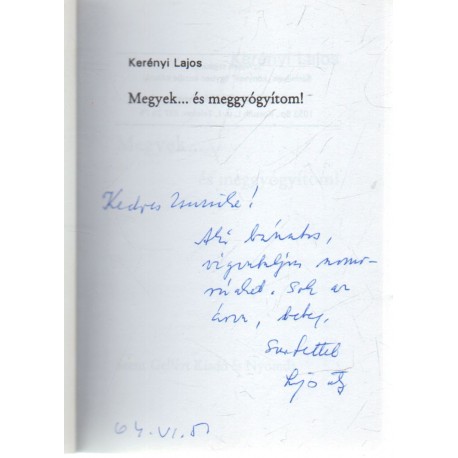 Kerényi Lajos
Megyek... és meggyógyítom!
Kedves Zsuzsike!
Aki bánatos,
vigasztaljon szomo-
rúakat. Sok az
árva, beteg.
Szeretettel
Lajos
04. VI.